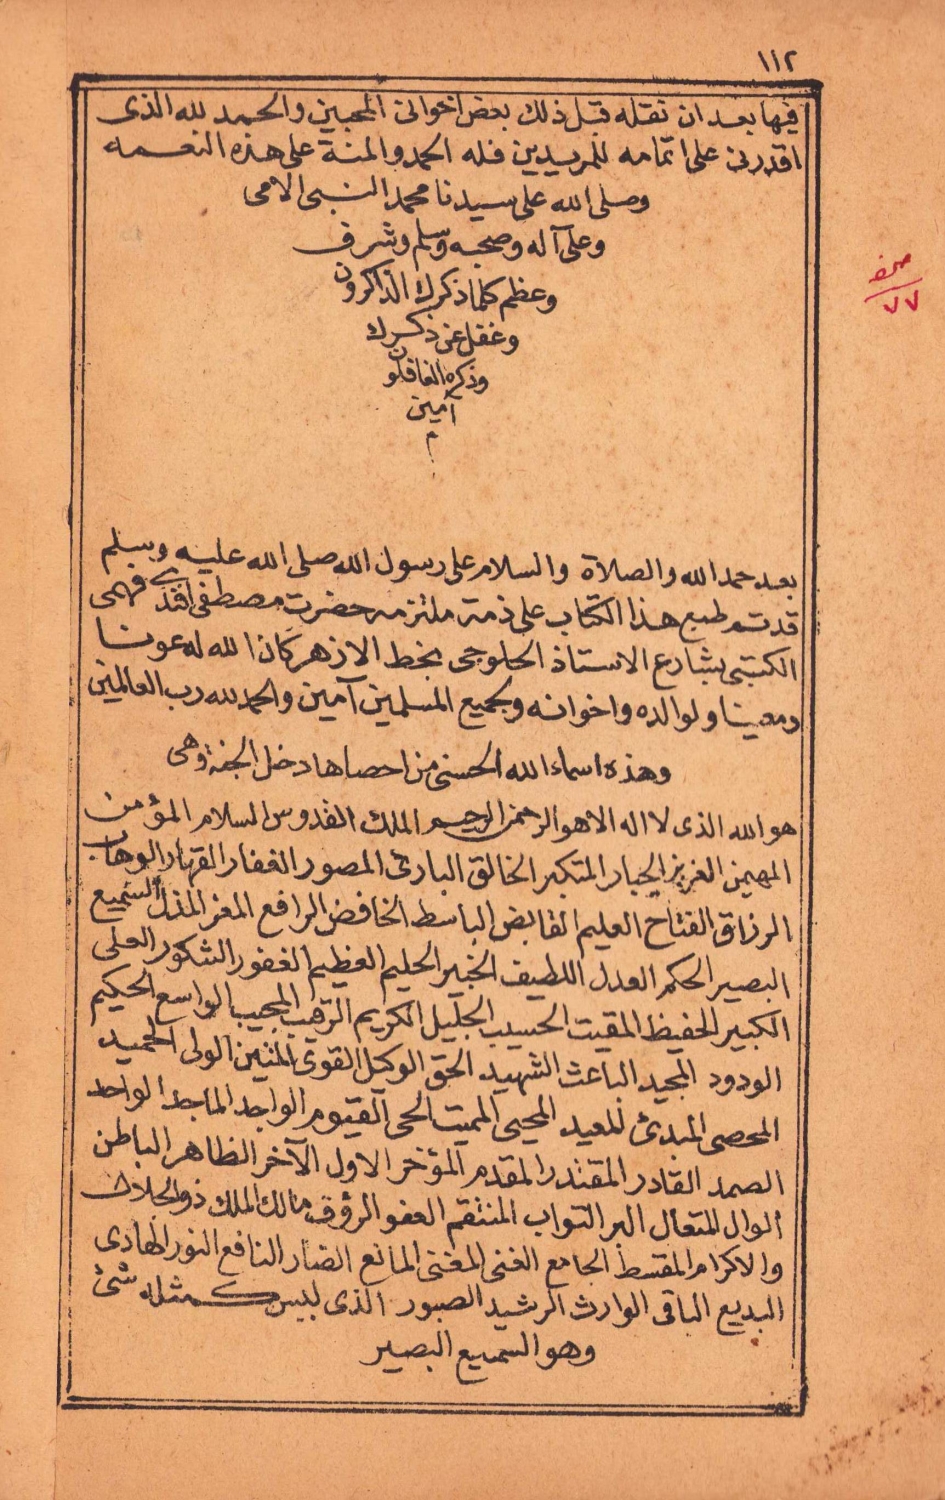 ١١٢
فيها بعد ان نقله قبل ذلك بعض اخوانى المحبين والحمد لله الذى
اقدرنى على اتمامه للمريدين فله الحمد والمنة على هذه النعمه
وصلى الله على سيدنا محمد النبى الامى
وعلى آله وصحبه وسلم وشرف
وعظم كلما ذكرك الذاكرون
وغفل عن ذكرك
وذكره الغافلون
آمين
م
صحفه
٧٧
بعد حمد الله والصلاة والسلام على رسول الله صلى الله عليه وسلم
قد تم طبع هذا الكتاب على ذمة ملتزمه حضرت مصطفى افندى فهمى
الكتبى بشارع الاستاذ الحلوجى بخط الازهر كان الله له عونا
ومعينا ولوالده واخوانه وبجميع المسلمين آمين والحمد لله رب العالمين
وهذه اسماء الله الحسنى من احصاها دخل الجنة وهى
هو الله الذى لا اله الا هو الرحمن الرحيم الملك القدوس السلام المؤمن
المهيمن العزيز الجبار المتكبر الخالق البارئ المصور الغفار القهار الوهاب
الرزاق الفتاح العليم القابض الباسط الخافض الرافع المعز المذل السميع
البصير الحكم العدل اللطيف الخبير الحليم العظيم الغفور الشكور العلى
الكبير الحفيظ المقيت الحسيب الجليل الكريم الرقيب المجيب الواسع الحكيم
الودود المجيد الباعث الشهيد الحق الوكيل القوى المتين الولى الحميد
المحصى المبدئ المعيد المحيى المميت الحى القيوم الواجد الماجد الواحد
الصمد القادر المقتدر المقدم المؤخر الاول الآخر الظاهر الباطن
الوال المتعال البر التواب المنتقم العفو الرؤف مالك الملك ذو الجلال
والاكرام المقسط الجامع الغنى المغنى المانع الضار النافع النور الهادى
البديع الباقى الوارث الرشيد الصبور الذى ليس كمثله شئ
وهو السميع البصير